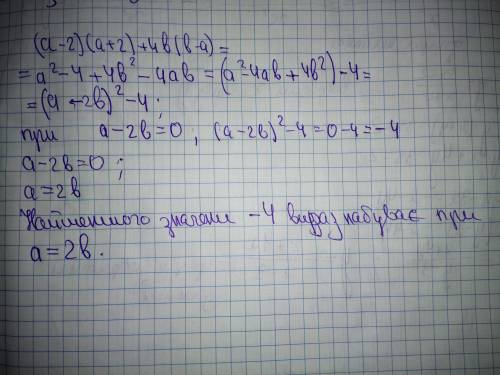 (a-2)(a+2)+4в(в-a)=
=a²-4+4в²-4aв=(a²-4aв+4в²)-4=
=(a-2в)²-4;
при a-2в=0, (a-2в)²-4=0-4=-4
a-2в=0;
a=2в
Найменшого значени -4 вираз набуває при
a=2в.